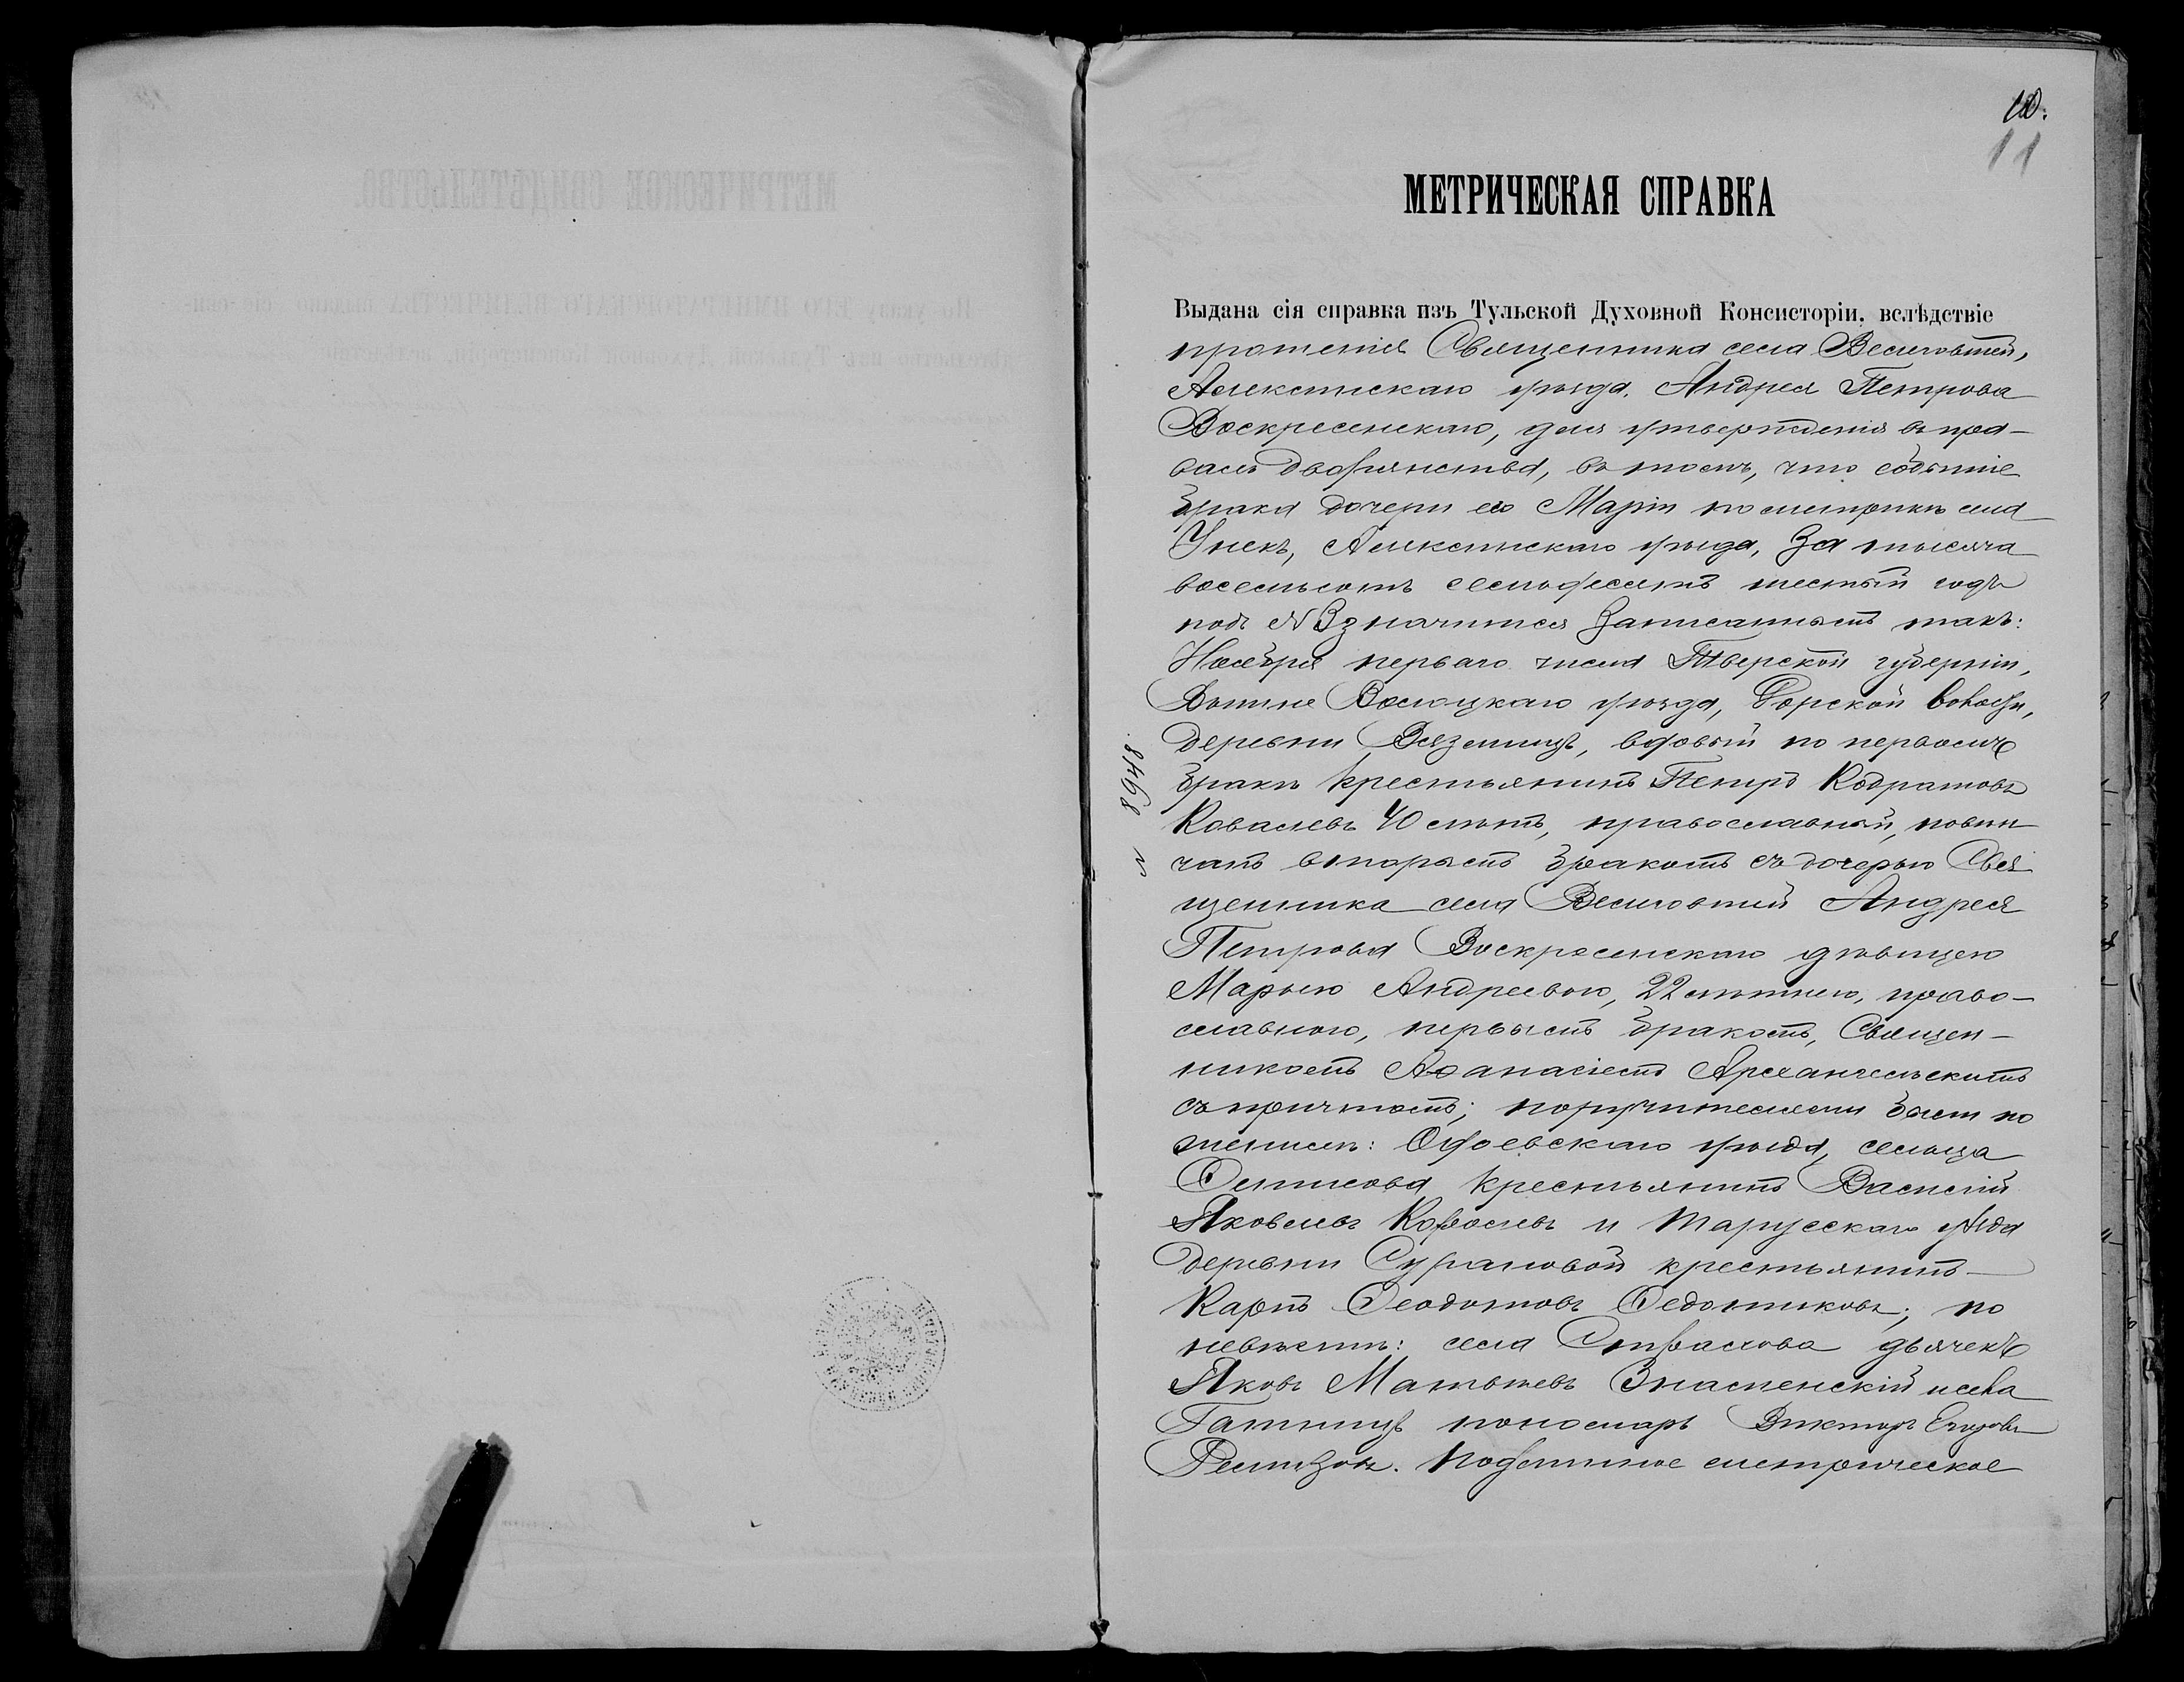 10.
11
МЕТРИЧЕСКАЯ СПРАВКА
Выдана сія справка изъ Тульской Духовной Консисторіи, вслѣдствіе
прошенія Священника села Велиговшей,
Алексинскаго уѣзда, Андрея Петрова
Воскресенскаго, для утвержденія въ пра-
вахъ дворянства, въ томъ, что событіе
брака дочери его Маріи по метрикѣ села
Унекъ, Алексинскаго уѣзда, за тысяча
восемьсотъ семьдесятъ шестый годъ
подъ № 3 значится записаннымъ такъ:
Ноября перваго числа Тверской губерніи,
Вышне Волоцкаго уѣзда, Горской волости,
деревни Вязмицъ, вдовый по первомъ
бракѣ крестьянинъ Петръ Кодратовъ
Ковалевъ 40 лѣтъ, православный, повѣн
чанъ вторымъ бракомъ съ дочерью Свя
щенника села Велиговшей Андрея
Петрова Воскресенскаго дѣвицею
Марьею Андреевою, 22 лѣтнею, право-
славною, первымъ бракомъ, Священ-
никомъ Аѳанасіемъ Архангельскимъ
съ причтомъ; поручителями были по
женихѣ: Одоевскаго уѣзда, сельца
крестьянинъ Василій
Яковлевъ и Тарусскаго уѣзда
деревни крестьянинъ
Карпъ Ѳеодотовъ Ѳедотиковъ; по
невѣстѣ: села дьячекъ
Яковъ Матвѣевъ Знаменскій и села
пономарь Викторъ Егоровъ
Ремизовъ. Подлинное метрическое
№ 8948
МЕТРИЧЕСКОЕ СВИДѢТЕЛЬСТВО.
По указу ЕГО ИМПЕРАТОРСКАГО ВЕЛИЧЕСТВА выдано сіе сви-
дѣтельство изъ Тульской Духовной Консисторіи, вслѣдствіе